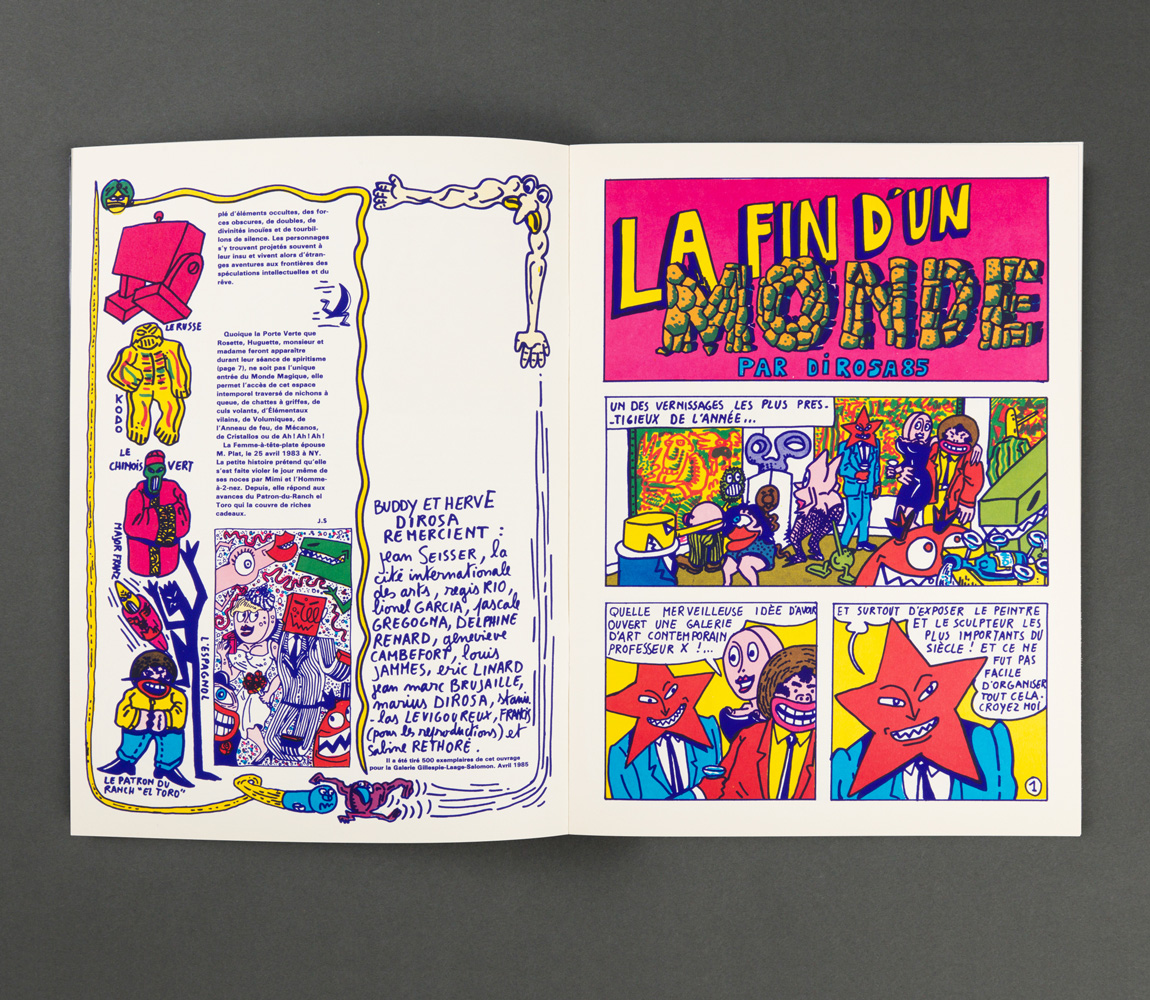 plé d'éléments occultes, des for-
ces obscures, de doubles, de
divinités inouïes et de tourbil-
lons de silence. Les personnages
s'y trouvent projetés souvent à
leur insu et vivent alors d'étran-
ges aventures aux frontières des
spéculations intellectuelles et du
rêve.
Quoique la Porte Verte que
Rosette, Huguette, monsieur et
madame feront apparaître
durant leur séance de spiritisme
(page 7), ne soit pas l'unique
entrée du Monde Magique, elle
permet l'accès de cet espace
intemporel traversé de nichons à
queue, de chattes à griffes, de
culs volants, d'Élémentaux
vilains, de Volumiques, de
l'Anneau de feu, de Mécanos,
de Cristallos ou de Ah! Ah! Ah!
La Femme-à-tête-plate épouse
M. Plat, le 25 avril 1983 à NY.
La petite histoire prétend qu'elle
s'est faite violer le jour même de
ses noces par Mimi et l'Homme-
à-2-nez. Depuis, elle répond aux
avances du Patron-du-Ranch el
Toro qui la couvre de riches
cadeaux.
J.S
LE RUSSE
KODO
LE
CHINOIS VERT
MAJOR FRITZ
L'ESPAGNOL
LE PATRON DU
RANCH "EL TORO"
BUDDY ET HERVE
DIROSA
REMERCIENT :
jean SEISSER, la
cité internationale
des arts, regis RIO,
lionel GARCIA, pascale
GREGOGNA, DELPHINE
RENARD, genevieve
CAMBEFORT, louis
JAMMES, eric LINARD
jean marc BRUJAILLE,
marius DIROSA, stanis
-las LEVIGOUREUX, FRANCIS
(pour les reproductions) et
Sabine RETHORE.
Il a été tiré 500 exemplaires de cet ouvrage
pour la Galerie Gillespie-Laage-Salomon. Avril 1985
LA FIN D'UN
MONDE
PAR DiROSA85
UN DES VERNISSAGES LES PLUS PRES-
-TIGIEUX DE L'ANNÉE...
QUELLE MERVEILLEUSE IDÉE D'AVOIR
OUVERT UNE GALERIE
D'ART CONTEMPORAIN
PROFESSEUR X !...
ET SURTOUT D'EXPOSER LE PEINTRE
ET LE SCULPTEUR LES
PLUS IMPORTANTS DU
SIÈCLE ! ET CE NE
FUT PAS
FACILE
D'ORGANISER
TOUT CELA.
CROYEZ MOI
1